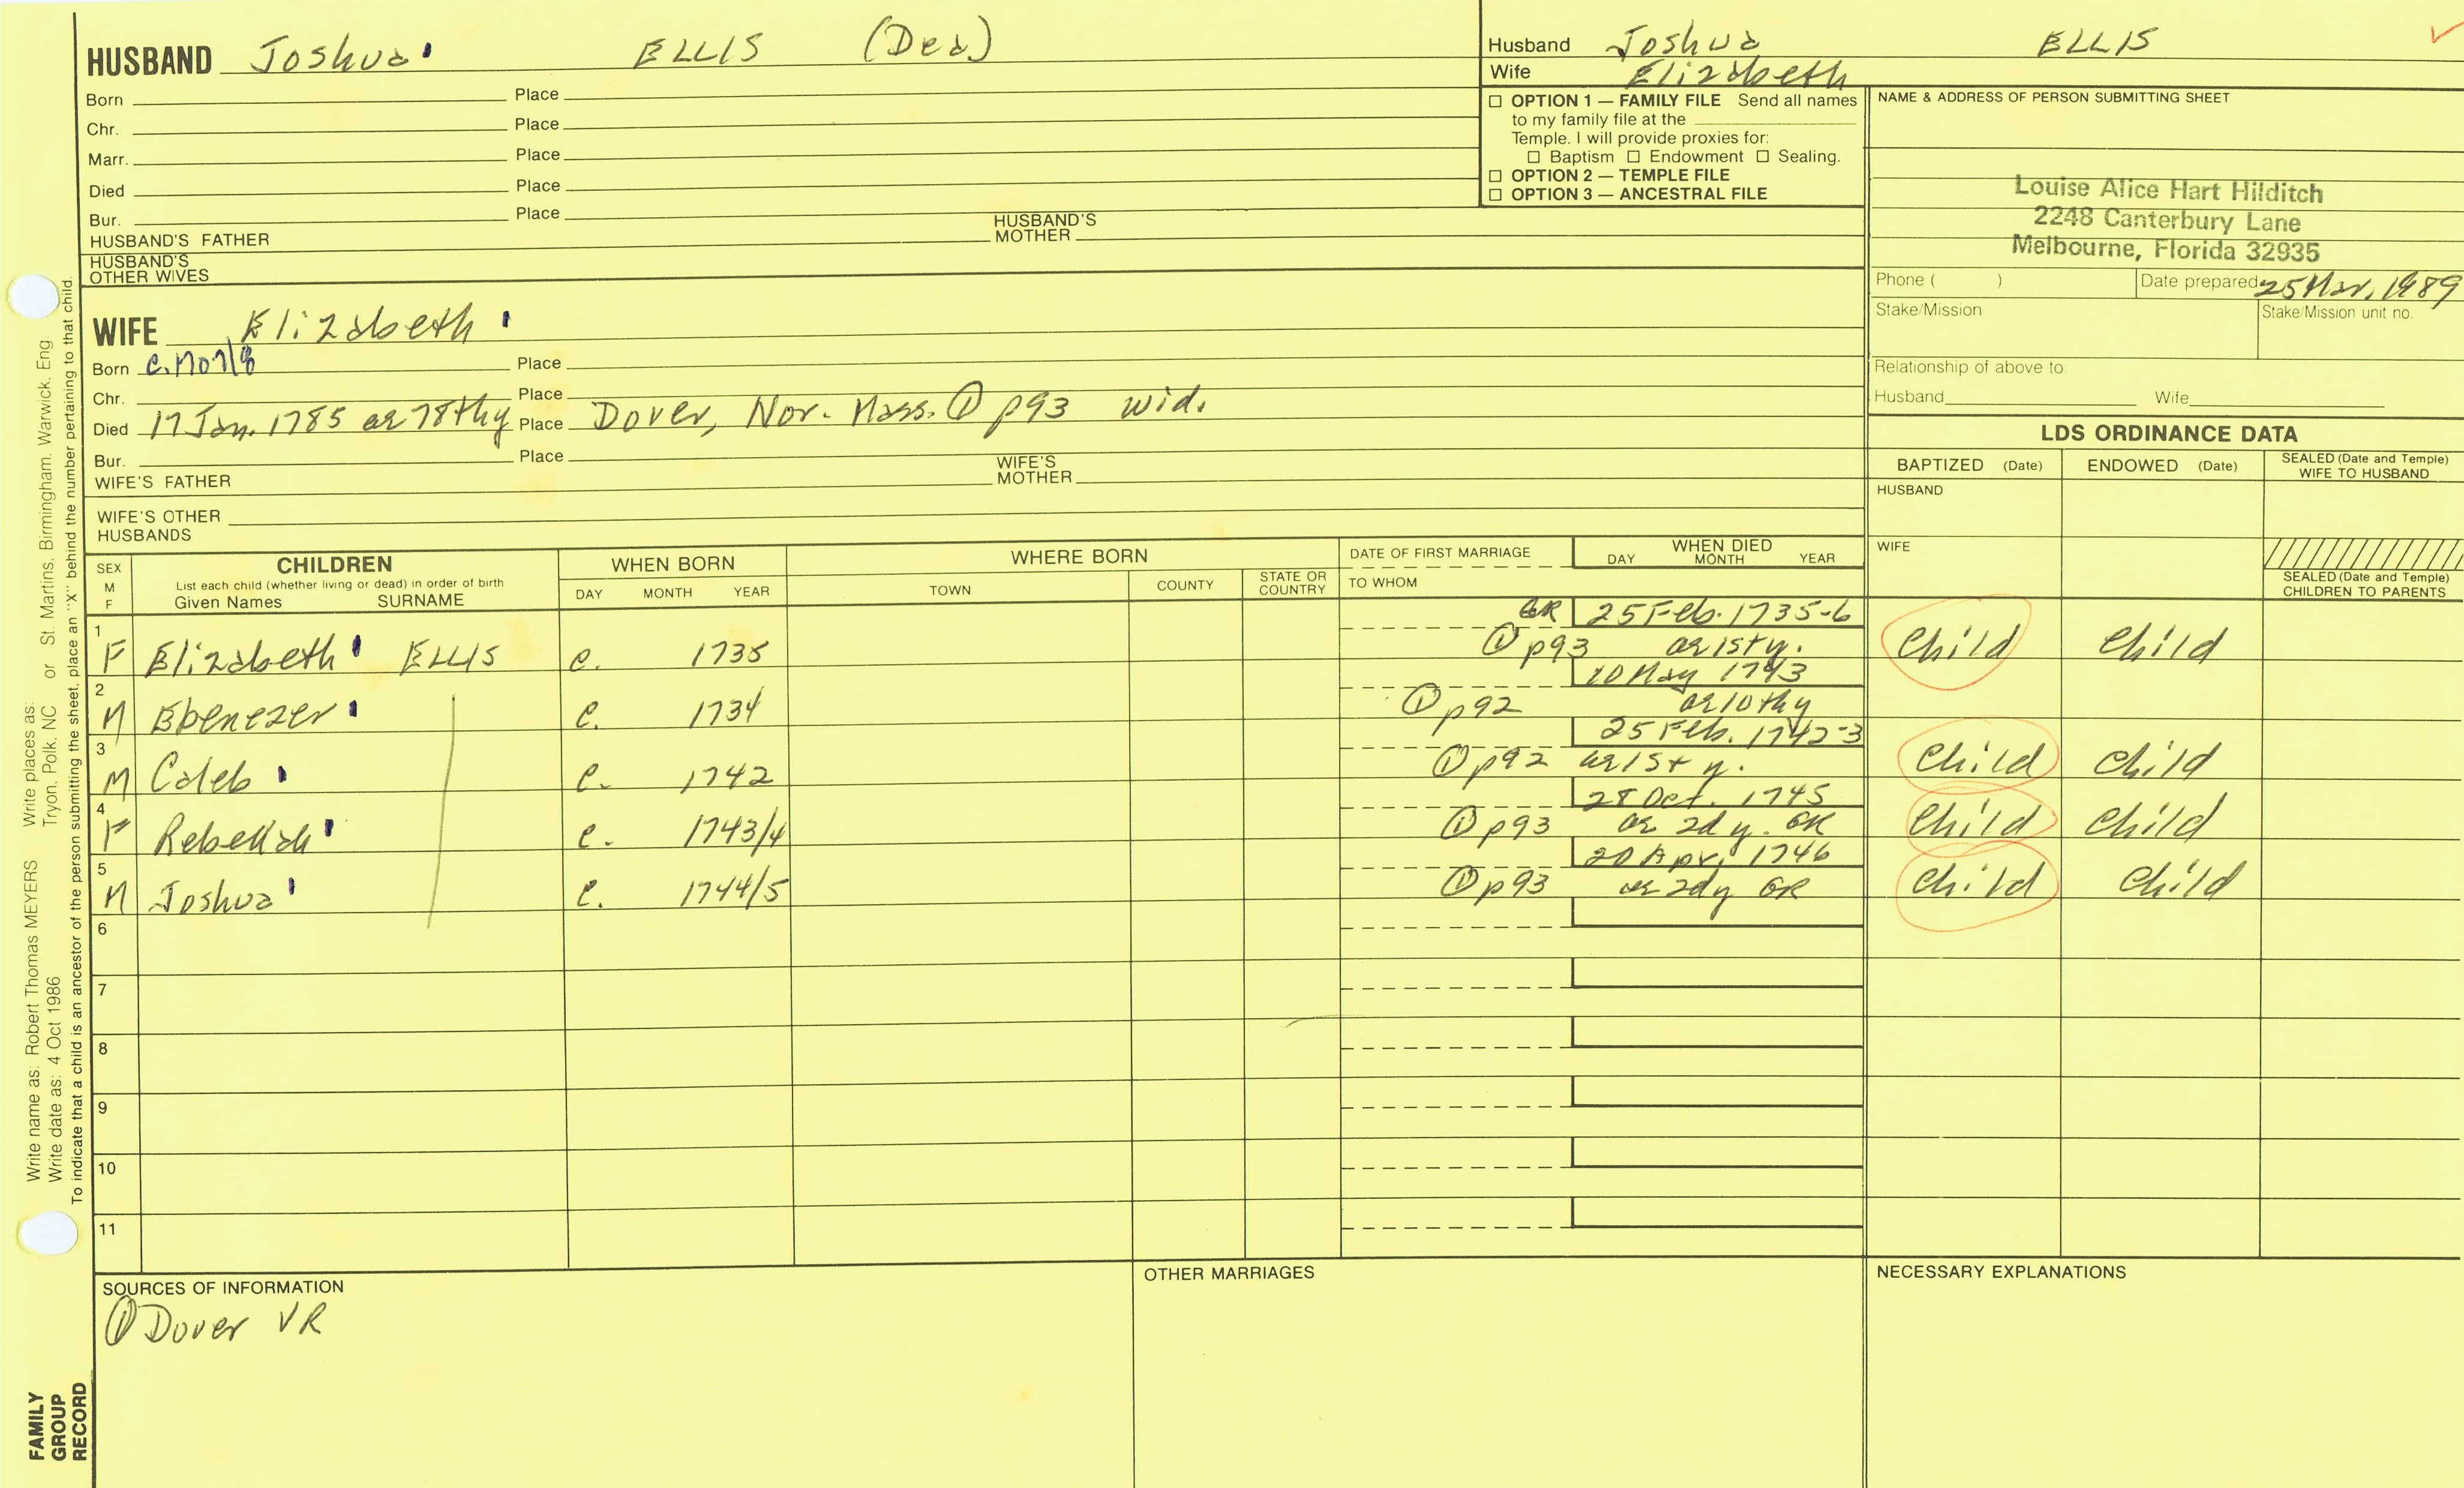 HUSBAND Joshua ELLIS (Dea)
Born Place
Chr. Place
Marr. Place
Died Place
Bur. Place
HUSBAND'S FATHER HUSBAND'S MOTHER
HUSBAND'S OTHER WIVES
WIFE Elizabeth
Born c. 1707/8 Place
Chr. Place
Died 17 Jan. 1785 ae 78thy Place Dover, Nor. Mass. ① p93 wid.
Bur. Place
WIFE'S FATHER WIFE'S MOTHER
WIFE'S OTHER HUSBANDS
Husband Joshua ELLIS
Wife Elizabeth
☐ OPTION 1 — FAMILY FILE Send all names
to my family file at the
Temple. I will provide proxies for:
☐ Baptism ☐ Endowment ☐ Sealing.
☐ OPTION 2 — TEMPLE FILE
☐ OPTION 3 — ANCESTRAL FILE
NAME & ADDRESS OF PERSON SUBMITTING SHEET
Louise Alice Hart Hilditch
2248 Canterbury Lane
Melbourne, Florida 32935
Phone ( ) Date prepared 25 Mar. 1989
Stake/Mission Stake/Mission unit no.
Relationship of above to:
Husband Wife
LDS ORDINANCE DATA
BAPTIZED (Date) ENDOWED (Date) SEALED (Date and Temple) WIFE TO HUSBAND
HUSBAND
WIFE
SEALED (Date and Temple) CHILDREN TO PARENTS
SEX M F CHILDREN List each child (whether living or dead) in order of birth Given Names SURNAME WHEN BORN DAY MONTH YEAR WHERE BORN TOWN COUNTY STATE OR COUNTRY DATE OF FIRST MARRIAGE TO WHOM WHEN DIED DAY MONTH YEAR
1 F Elizabeth ELLIS c. 1735 GR ① p93 25 Feb. 1735-6 ae 1sty. Child Child
2 M Ebenezer c. 1734 ① p92 10 May 1743 ae 10thy
3 M Caleb c. 1742 ① p92 25 Feb. 1742-3 ae 1st y. Child Child
4 F Rebekah c. 1743/4 ① p93 28 Oct. 1745 ae 2d y. GR Child Child
5 M Joshua c. 1744/5 ① p93 20 Apr. 1746 ae 2dy GR Child Child
6
7
8
9
10
11
SOURCES OF INFORMATION
① Dover VR
OTHER MARRIAGES
NECESSARY EXPLANATIONS
Write name as: Robert Thomas MEYERS Write places as: Tryon, Polk, NC or St. Martins, Birmingham, Warwick, Eng
Write date as: 4 Oct 1986
To indicate that a child is an ancestor of the person submitting the sheet, place an "X" behind the number pertaining to that child.
FAMILY
GROUP
RECORD